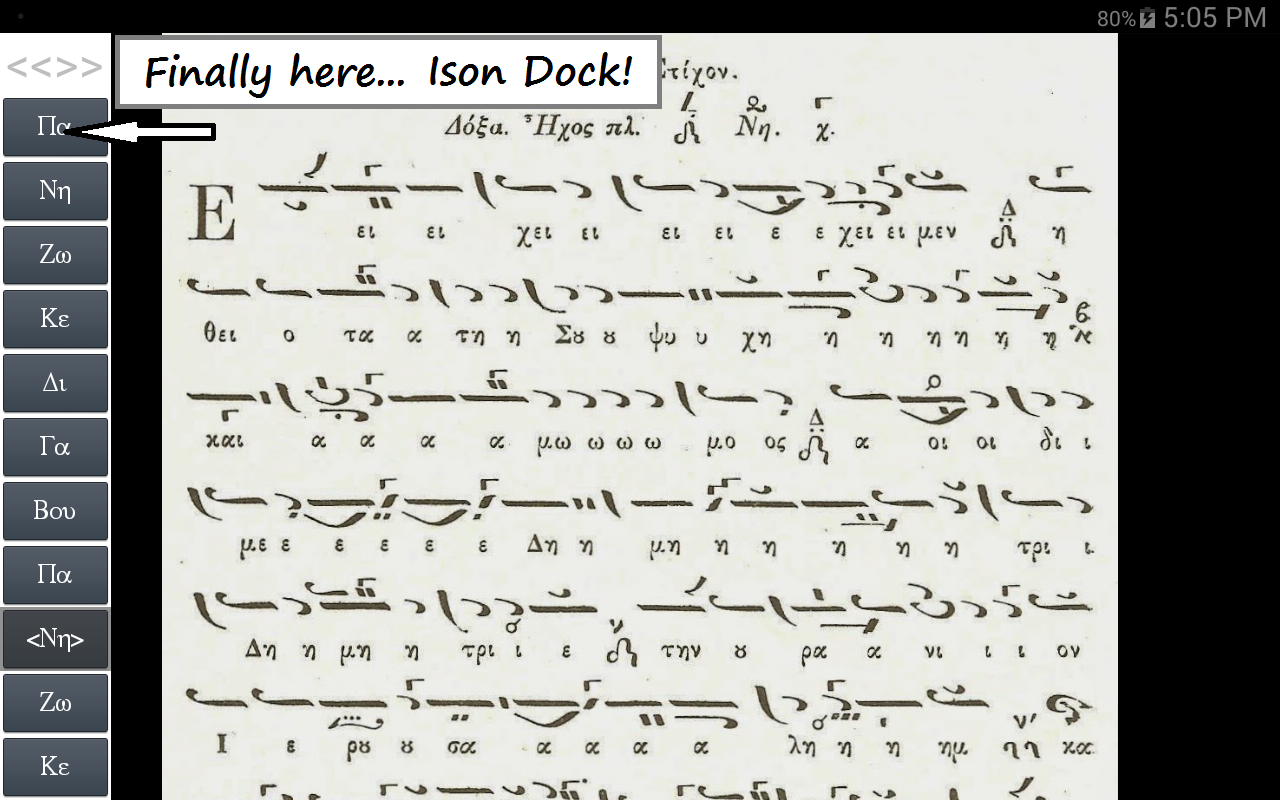 80% 5:05 PM
<<>>
Finally here... Ison Dock!
Πα
Νη
Ζω
Κε
Δι
Γα
Βου
Πα
<Νη>
Ζω
Κε
Στίχον.
Δόξα. Ἦχος πλ. Νη. χ.
Ε ει ει χει ει ει ει ε ε χει ει μεν Δ η
θει ο τα α τη η Σȣ ȣ ψυ υ χη η η η η η η
και α α α α μω ω ω ω μο ος Δ α οι οι δι ι
με ε ε ε ε ε Δη η μη η η η η η τρι ι
Δη η μη η τρι ι ε την ȣ ρα α νι ι ι ον
Ι ε ρȣ ȣ σα α α α α λη η η ημ κα